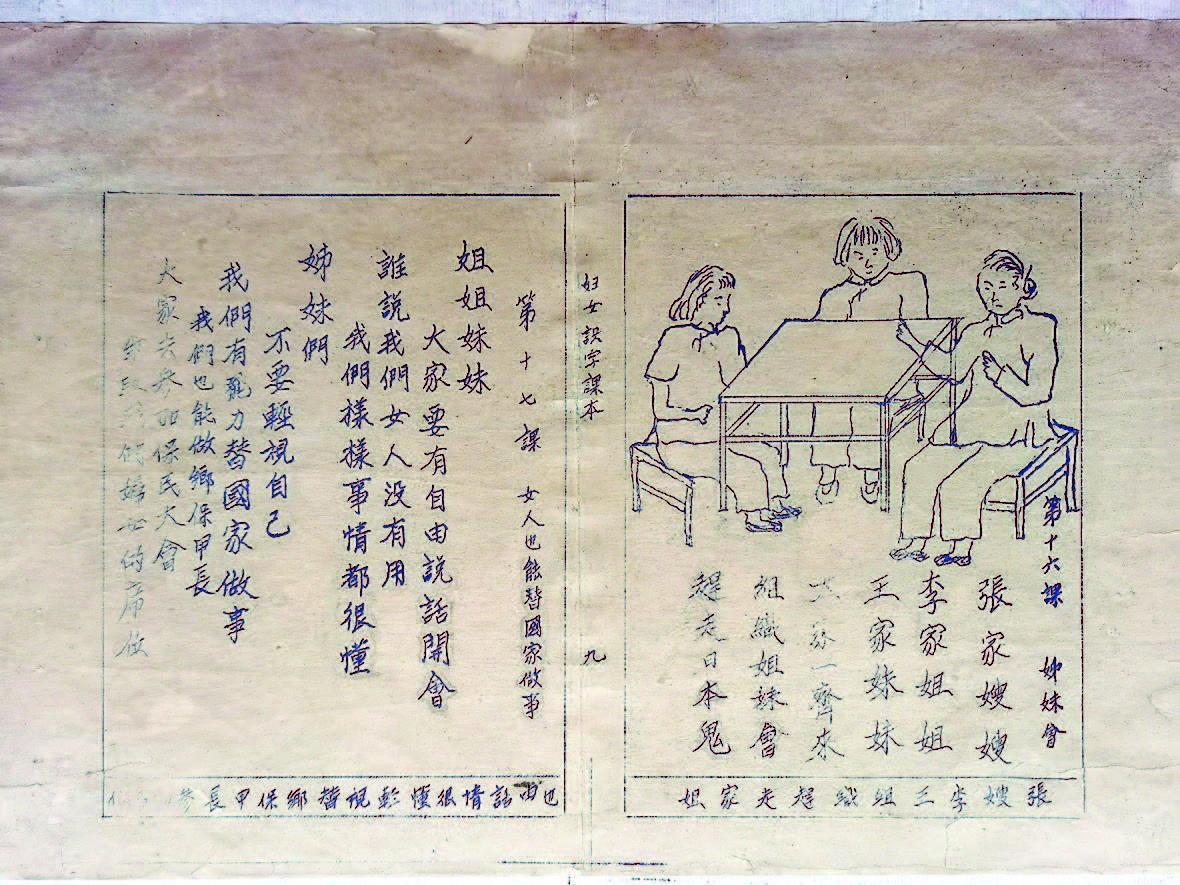 第十六課 姊妹會
張家嫂嫂
李家姐姐
王家妹妹
大家一齊來
組織姐妹會
趕走日本鬼
張嫂李王組織趕走家姐
妇女識字課本 九
第十七課 女人也能替國家做事
姐姐妹妹
大家要有自由説話開會
誰説我們女人没有用
我們樣樣事情都很懂
姊妹們
不要輕視自己
我們有能力替國家做事
我們也能做鄉保甲長
大家去參加保民大會
我們婦女的席位
也由話情很懂輕視替鄉保甲長參